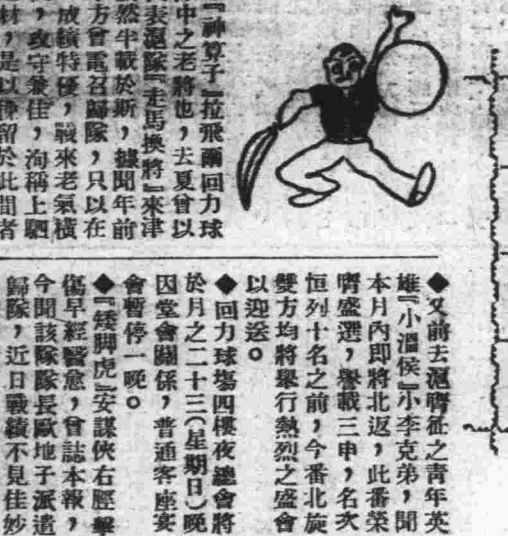 『神算子』拉飛爾回力球
中之老將也，去夏曾以
表滬隊『走馬換將』來津
然半載於斯，據聞年前
方曾電召歸隊，只以在
成績特優，戰來老氣橫
，攻守兼佳，洵稱上駟
材，是以慘留於此間者
◆又前去滬膺征之青年英
雄『小溫侯』小李克弟，聞
本月內即將北返，此番榮
膺盛選，譽載三申，名次
恒列十名之前，今番北旋
雙方均將舉行熱烈之盛會
以迎送。
◆回力球塲四樓夜總會將
於月之二十三（星期日）晚
因堂會關係，普通客座宴
會暫停一晚。
◆『矮脚虎』安謀俠右脛擊
傷早經醫愈，曾誌本報，
今聞該隊隊長歐地子派遣
歸隊，近日戰績不見佳妙